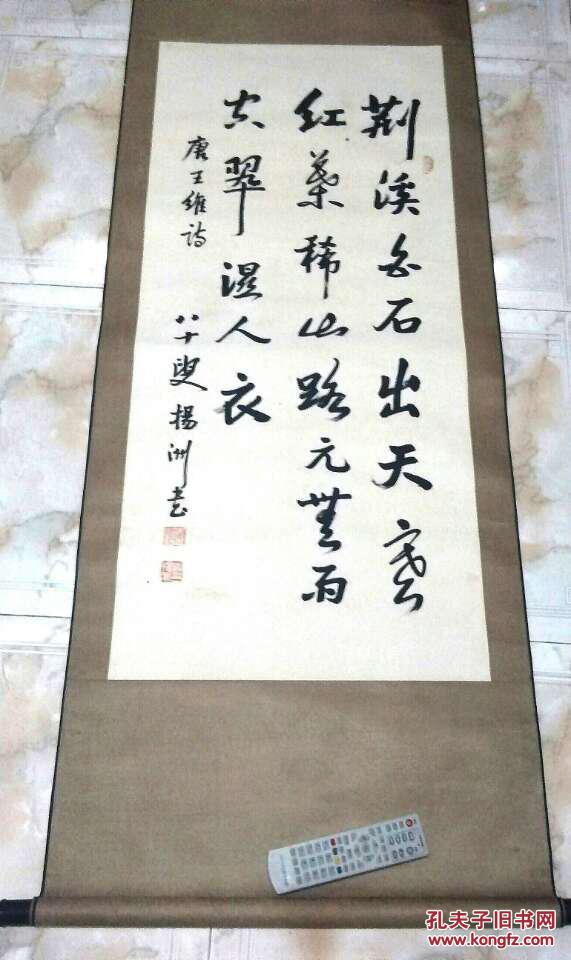 荆溪白石出天寒
红叶稀山路元無雨
空翠濕人衣
唐王維诗
八十叟 楊洲书
孔夫子旧书网
www.kongfz.com